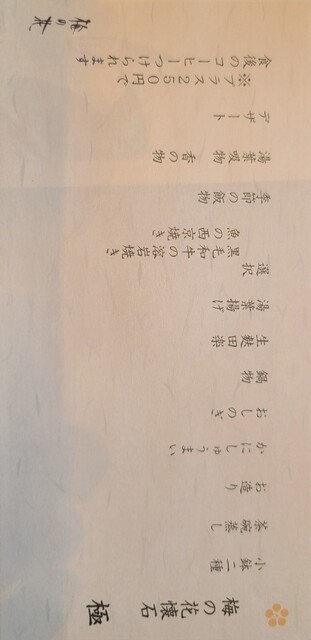 梅の花懐石 極
小鉢二種
茶碗蒸し
お造り
かにしゅうまい
おしのぎ
鍋物
生麩田楽
湯葉揚げ
選択
黒毛和牛の溶岩焼き
魚の西京焼き
季節の飯物
湯葉吸物 香の物
デザート
※プラス250円で
食後のコーヒーつけられます
梅の花